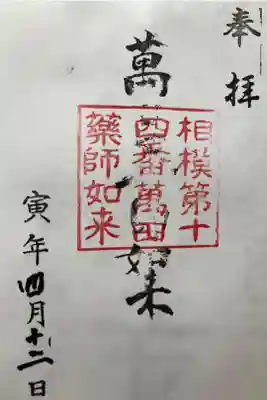 奉拝
萬
如来
相模第十
四番萬田
藥師如来
寅年四月十二日